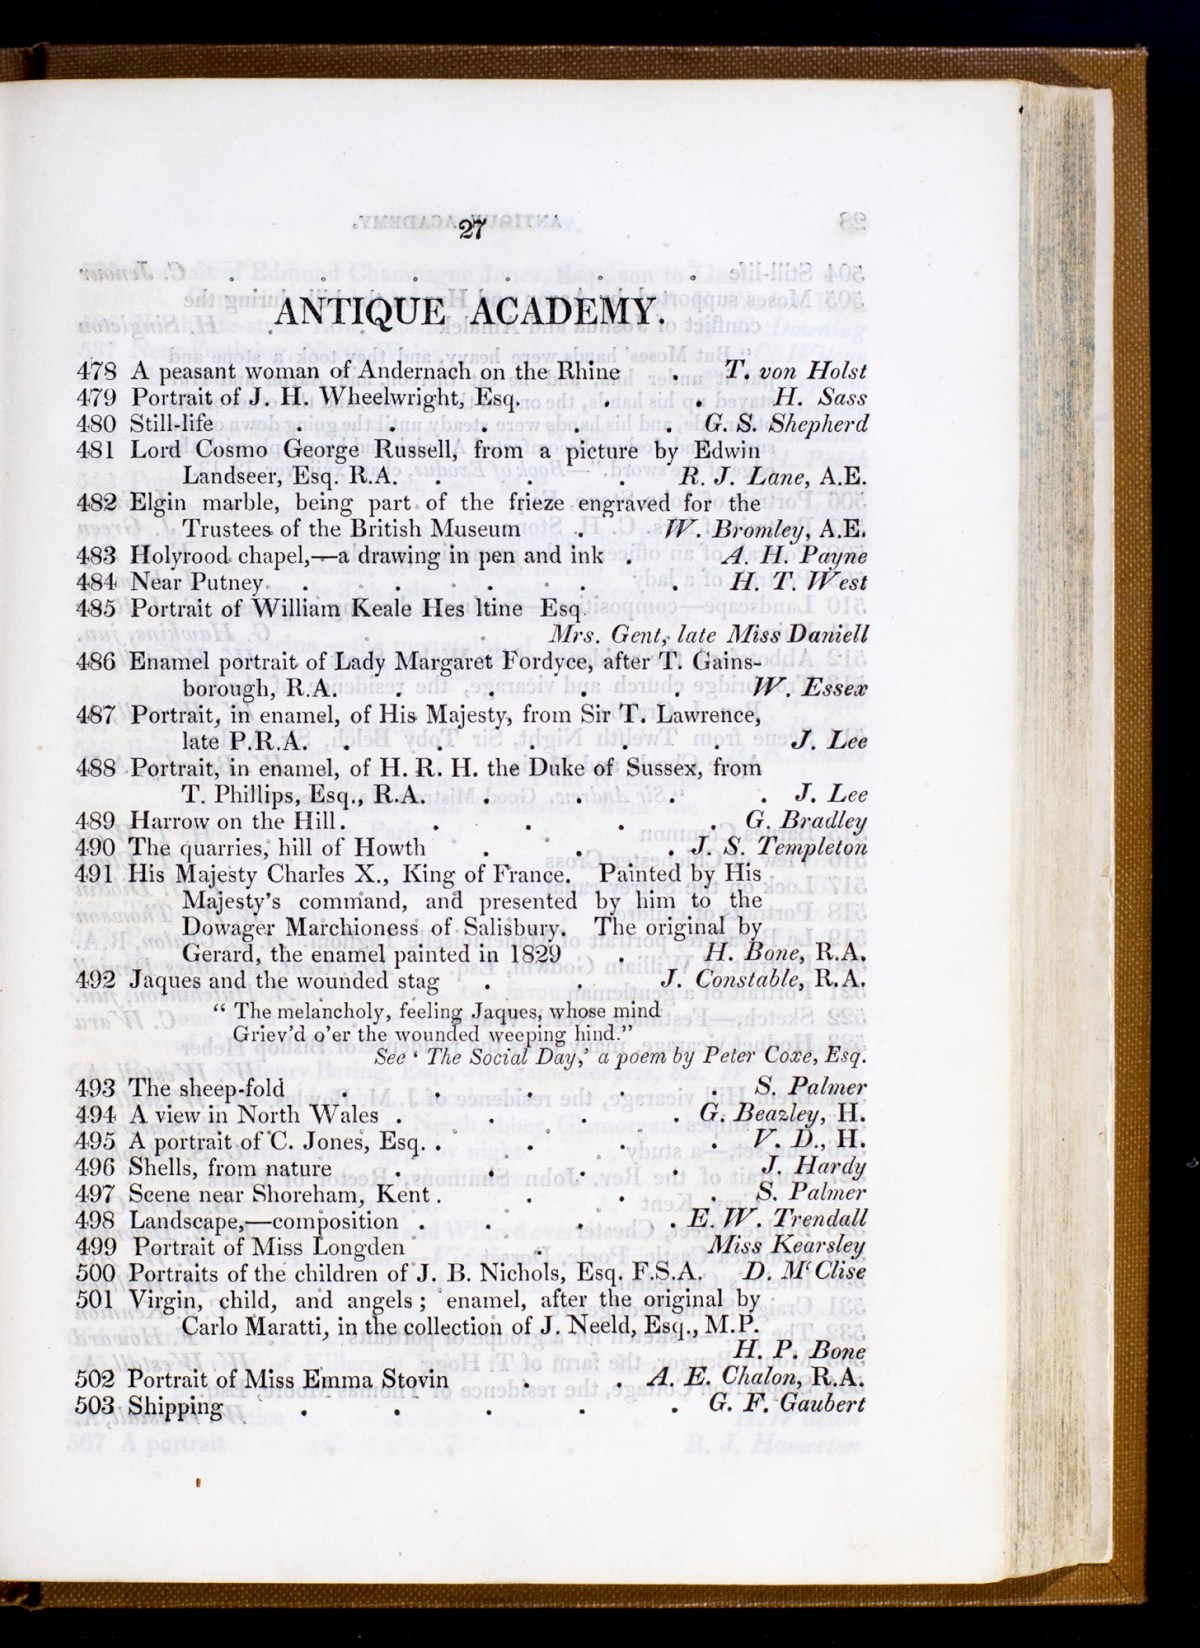 27
ANTIQUE ACADEMY.
478 A peasant woman of Andernach on the Rhine . T. von Holst
479 Portrait of J. H. Wheelwright, Esq. . . H. Sass
480 Still-life . . . . . G. S. Shepherd
481 Lord Cosmo George Russell, from a picture by Edwin
Landseer, Esq. R.A. . . . R. J. Lane, A.E.
482 Elgin marble, being part of the frieze engraved for the
Trustees of the British Museum . W. Bromley, A.E.
483 Holyrood chapel,—a drawing in pen and ink . A. H. Payne
484 Near Putney . . . . . H. T. West
485 Portrait of William Keale Hes ltine Esq.
Mrs. Gent, late Miss Daniell
486 Enamel portrait of Lady Margaret Fordyce, after T. Gains-
borough, R.A. . . . . W. Essex
487 Portrait, in enamel, of His Majesty, from Sir T. Lawrence,
late P.R.A. . . . . . J. Lee
488 Portrait, in enamel, of H. R. H. the Duke of Sussex, from
T. Phillips, Esq., R.A. . . . . J. Lee
489 Harrow on the Hill . . . . . G. Bradley
490 The quarries, hill of Howth . . . J. S. Templeton
491 His Majesty Charles X., King of France. Painted by His
Majesty's command, and presented by him to the
Dowager Marchioness of Salisbury. The original by
Gerard, the enamel painted in 1829 . H. Bone, R.A.
492 Jaques and the wounded stag . . J. Constable, R.A.
“ The melancholy, feeling Jaques, whose mind
Griev'd o'er the wounded weeping hind.”
See ‘ The Social Day,’ a poem by Peter Coxe, Esq.
493 The sheep-fold . . . . . S. Palmer
494 A view in North Wales . . . . G. Beazley, H.
495 A portrait of C. Jones, Esq. . . . . V. D., H.
496 Shells, from nature . . . . J. Hardy
497 Scene near Shoreham, Kent . . . . S. Palmer
498 Landscape,—composition . . . . E. W. Trendall
499 Portrait of Miss Longden . . Miss Kearsley
500 Portraits of the children of J. B. Nichols, Esq. F.S.A. D. M‘Clise
501 Virgin, child, and angels ; enamel, after the original by
Carlo Maratti, in the collection of J. Neeld, Esq., M.P.
H. P. Bone
502 Portrait of Miss Emma Stovin . . A. E. Chalon, R.A.
503 Shipping . . . . . G. F. Gaubert